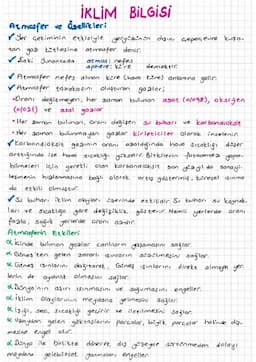 İKLİM BİLGİSİ
Atmosfer ve Özellikleri
Yer çekiminin etkisiyle yeryüzünün dışını çepeçevre kuşa-
tan gaz kütlesine atmosfer denir.
Eski Yunancada atmos: nefes
sphere: küre demektir.
Atmosfer nefes alınan küre (hava küre) anlamına gelir.
Atmosfer tabakasını oluşturan gazlar;
Oranı değişmeyen, her zaman bulunan azot (%78), oksijen
(%21) ve asal gazlar
Her zaman bulunan, oranı değişen su buharı ve karbondioksit
Her zaman bulunmayan gazlar kirleticiler olarak incelenir.
Karbondioksit gazının oranı azaldığında hava sıcaklığı düşer
arttığında ise hava sıcaklığı yükselir. Bitkilerin fotosentez yapa-
bilmeleri için gerekli olan karbondioksit son yüzyılda sanayi-
leşmenin hızlanmasına bağlı olarak artış göstermiş, küresel ısınma
da etkili olmuştur.
Su buharı iklim olayları üzerinde etkilidir. Su buharı su kaynak-
ları ve sıcaklığa göre değişiklik gösterir. Nemli yerlerde oranı
fazla, soğuk yerlerde oranı azdır.
Atmosferin Etkileri
İçinde bulunan gazlar canlıların yaşamasını sağlar.
Güneş'ten gelen zararlı ışınların azalmasını sağlar.
Güneş ışınlarını dağıtarak, Güneş ışınlarını direkt almayan yer-
lerin de aydınlık olmasını sağlar.
Dünya'nın aşırı ısınmasını ve soğumasını engeller.
İklim olaylarının meydana gelmesini sağlar.
Işığı, sesi, sıcaklığı geçirir ve iletilmesini sağlar.
Uzaydan gelen göktaşlarının parçalar, büyük parçalar halinde düş-
mesine engel olur.
Dünya ile birlikte dönerek dış yüzeyle sürtünmeden dolayı
meydana gelebilecek yanmaları engeller.